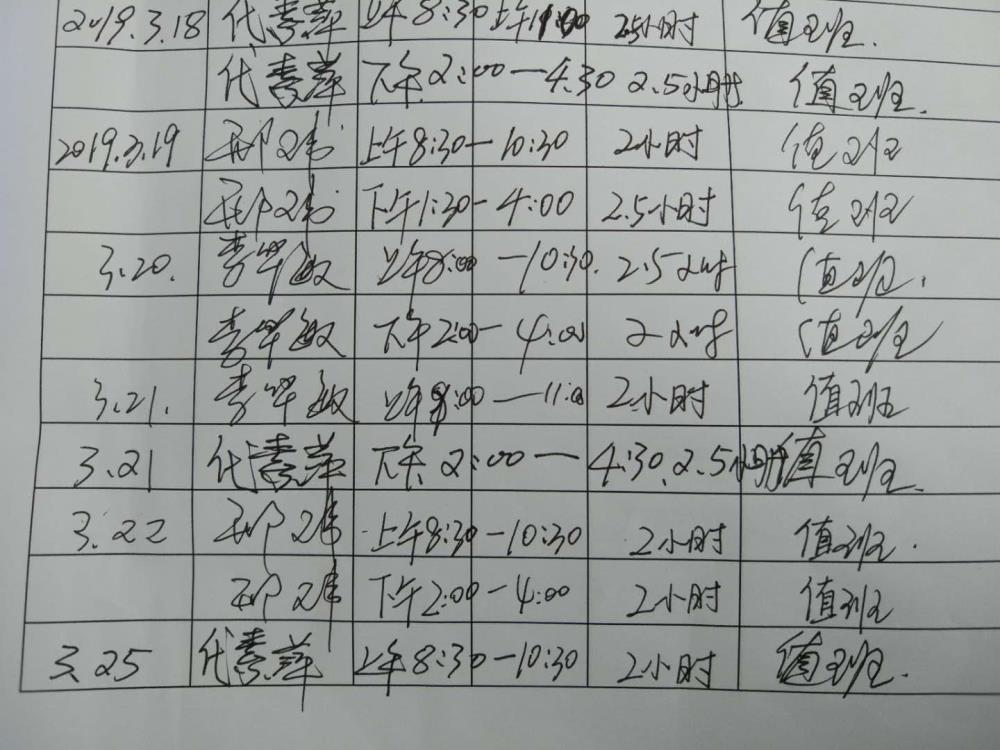 2019.3.18 代素萍 上午8:30 上午11:00 2.5小时 值班.
代素萍 下午2:00—4:30 2.5小时 值班.
2019.3.19 邢玮 上午8:30—10:30 2小时 值班
邢玮 下午1:30—4:00 2.5小时 值班
3.20. 李毕敏 上午8:00—10:30. 2.5小时 值班.
李毕敏 下午2:00—4:00 2小时 值班
3.21. 李毕敏 上午9:00—11:00 2小时 值班
3.21 代素萍 下午2:00—4:30. 2.5小时 值班.
3.22 邢玮 上午8:30—10:30 2小时 值班.
邢玮 下午2:00—4:00 2小时 值班
3.25 代素萍 上午8:30—10:30 2小时 值班.